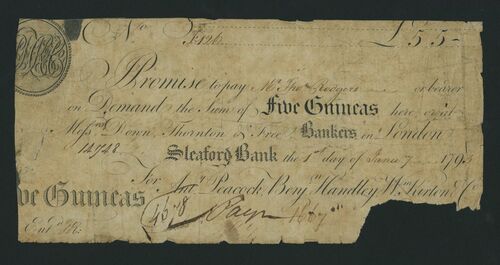 No F126 £ 5 5 -
Promise to pay Mr. Thos. Rodgers or bearer
on Demand the Sum of Five Guineas here or at
Messrs Down, Thornton & Free Bankers in London
14948
Sleaford Bank the 1st day of June 1793
For Peacock, Benjn Handley, Wm Kirton & Co
ve Guineas
Entd